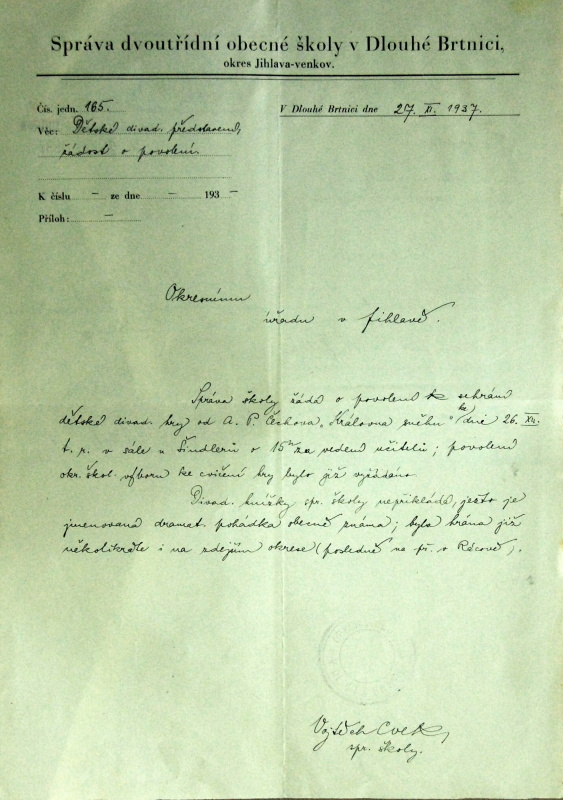 Správa dvoutřídní obecné školy v Dlouhé Brtnici,
okres Jihlava-venkov.
Čís. jedn. 165.
V Dlouhé Brtnici dne 27. XI. 1937.
Věc: Dětské divad. představení,
žádost o povolení.
K číslu — ze dne — 193 —
Příloh: —
Okresnímu
úřadu v Jihlavě.
Správa školy žádá o povolení k sehrání
dětské divad. hry od A. P. Čechova „Královna sněhu“ dne 26. XII.
t. r. v sále u Šindlerů o 15 za vedení učitelů; povolení
okr. škol. výboru ke cvičení hry bylo již vyžádáno.
Divad. knížky spr. školy nepřikládá, ježto je
jmenovaná dramat. pohádka obecně známa; byla hrána již
několikráte i na zdejším okrese (posledně na př. v).
Vojtěch
spr. školy.